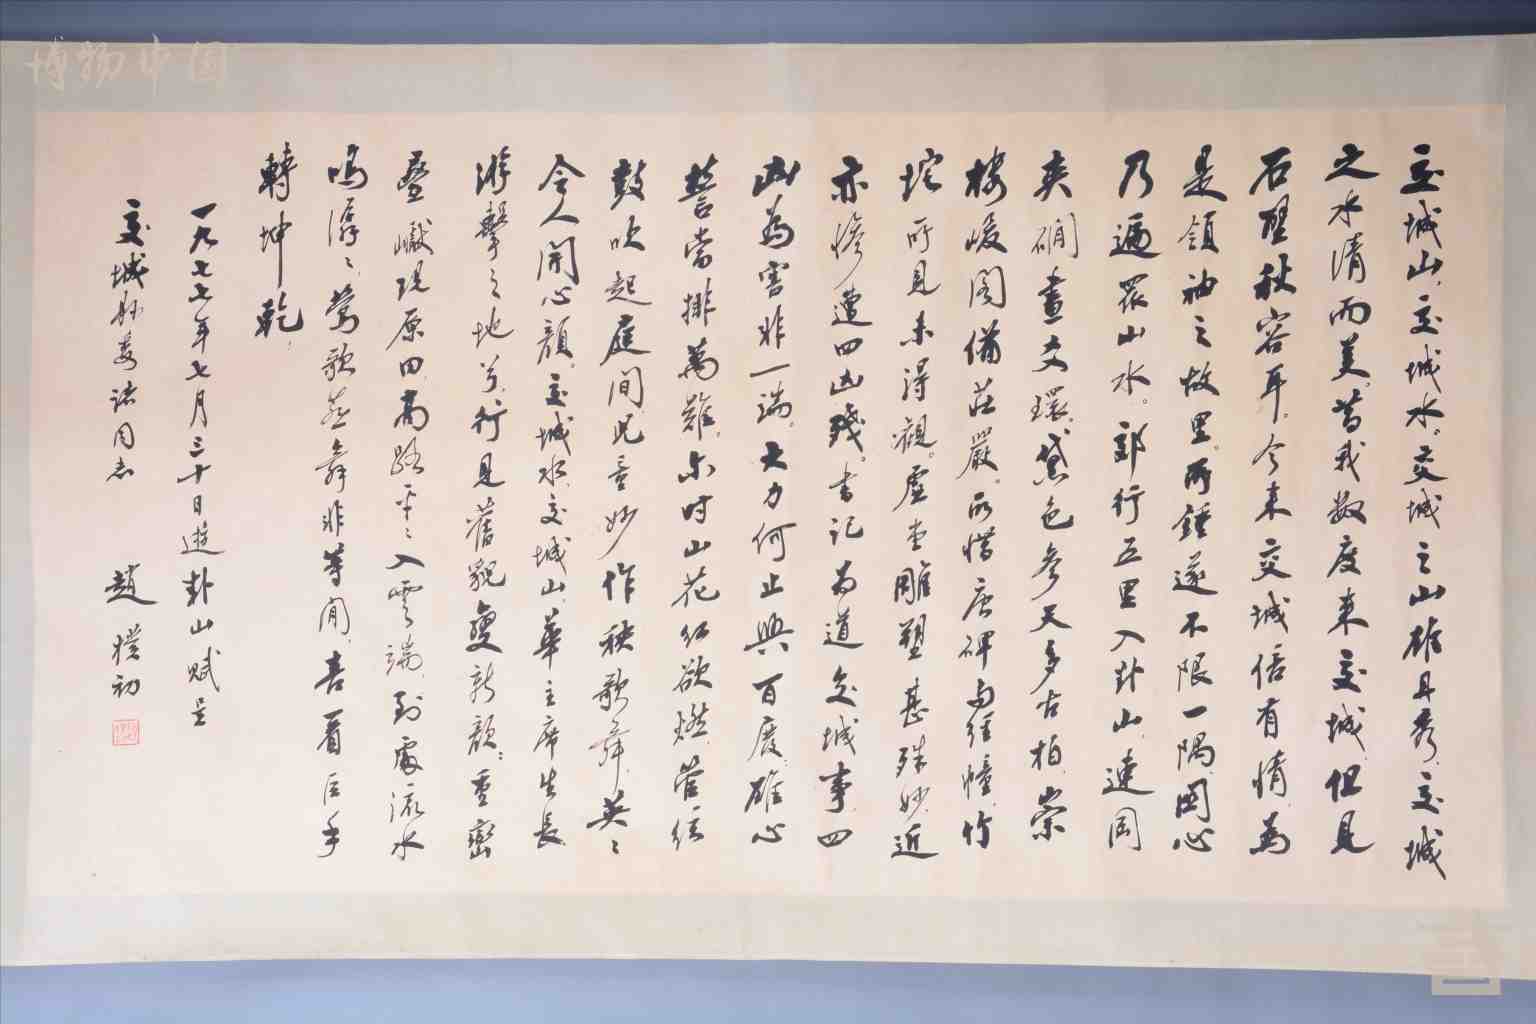 交城山,交城水。交城之山雄且秀,交城
之水清而美。昔我数度来交城,但见
石壁秋容耳。今来交城倍有情,为
是领袖之故里。所钟遂不限一隅,图心
乃遍眾山水。郭行五里入卦山,连冈
夹磵画文環。黛色参天多古柏,崇
楼峻阁備莊嚴。所惜唐碑与经幢,竹
垞所见未得觀。虚堂雕塑甚殊妙,近
亦惨遭四凶残。书记为道交城事,四
凶为害非一端。大力何止興百废,雄心
誓當排萬難。尔时山花红欲燃,管弦
鼓吹起庭间。児童妙作秧歌舞,英〻
令人開心颜。交城水,交城山,華主席生長
游擊之地兮,行見舊貌變新颜。重巒
叠巘現原田,高路平〻入雲端。到處流水
鳴潺〻,莺歌燕舞非等闲,喜看巨手
轉坤乾。
一九七七年七月三十日遊卦山赋呈
交城縣委諸同志
趙樸初
博物中国